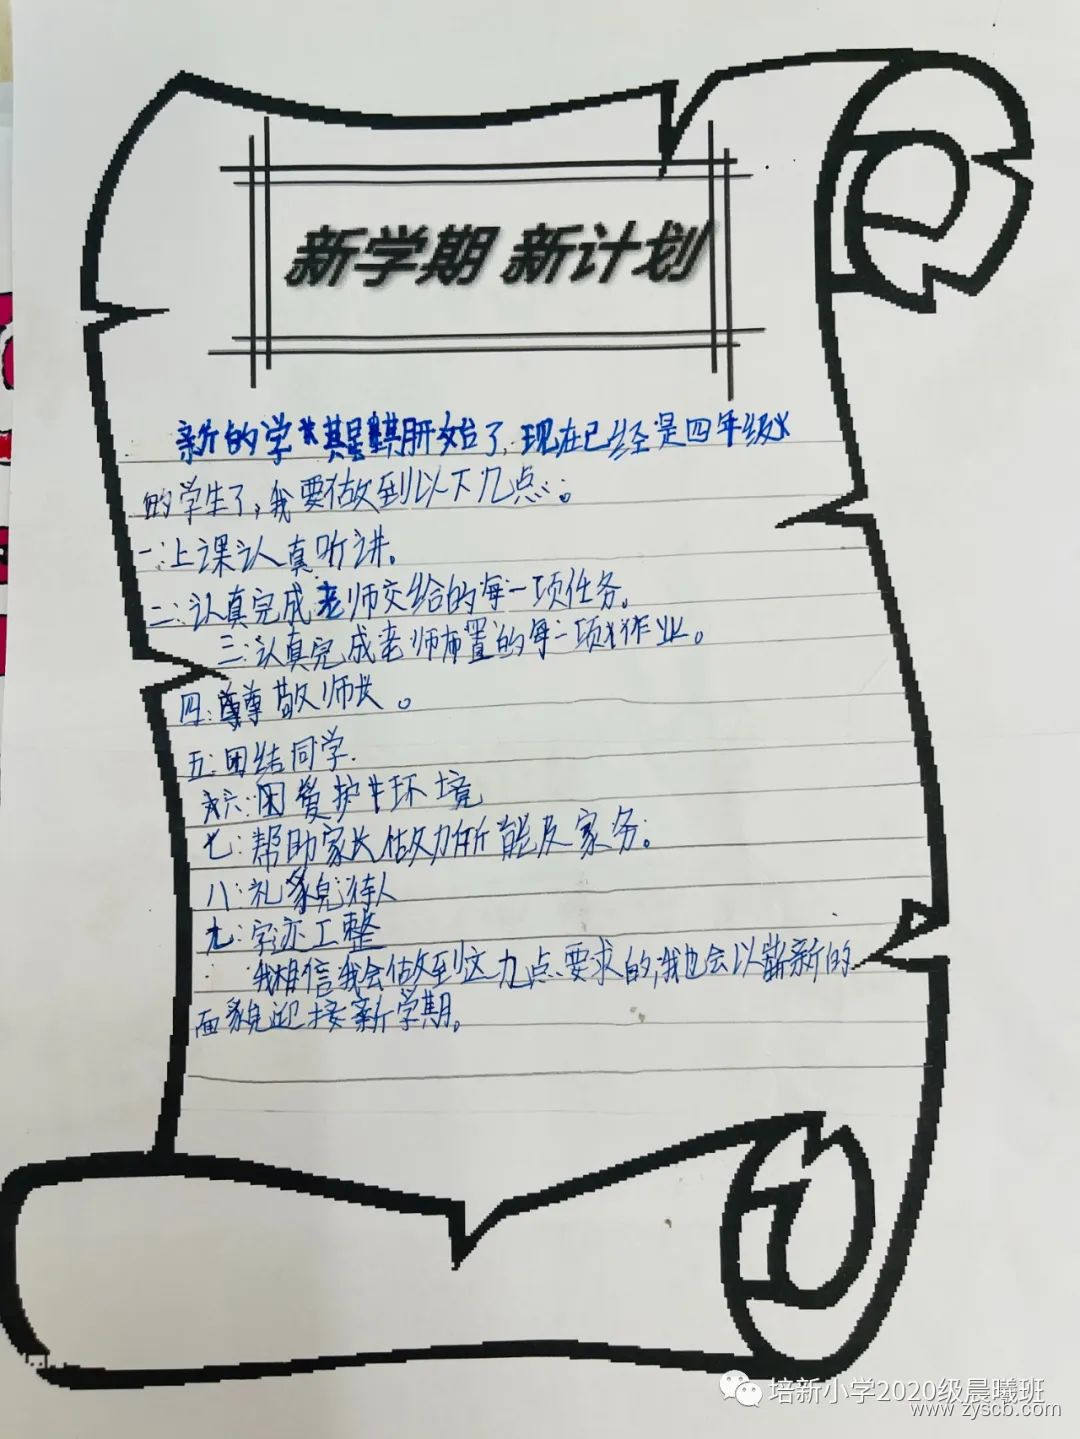 新学期 新计划
新的学期开始了,现在已经是四年级
的学生了,我要做到以下几点:。
一:上课认真听讲。
二:认真完成老师交给的每一项任务。
三:认真完成老师布置的每一项作业。
四:尊敬师长。
五:团结同学.
六:爱护环境
七:帮助家长做力所能及家务。
八:礼貌待人
九:字迹工整
我相信我会做到这九点要求的,我也会以崭新的
面貌迎接新学期。
培新小学2020级晨曦班
www.zyscb.com